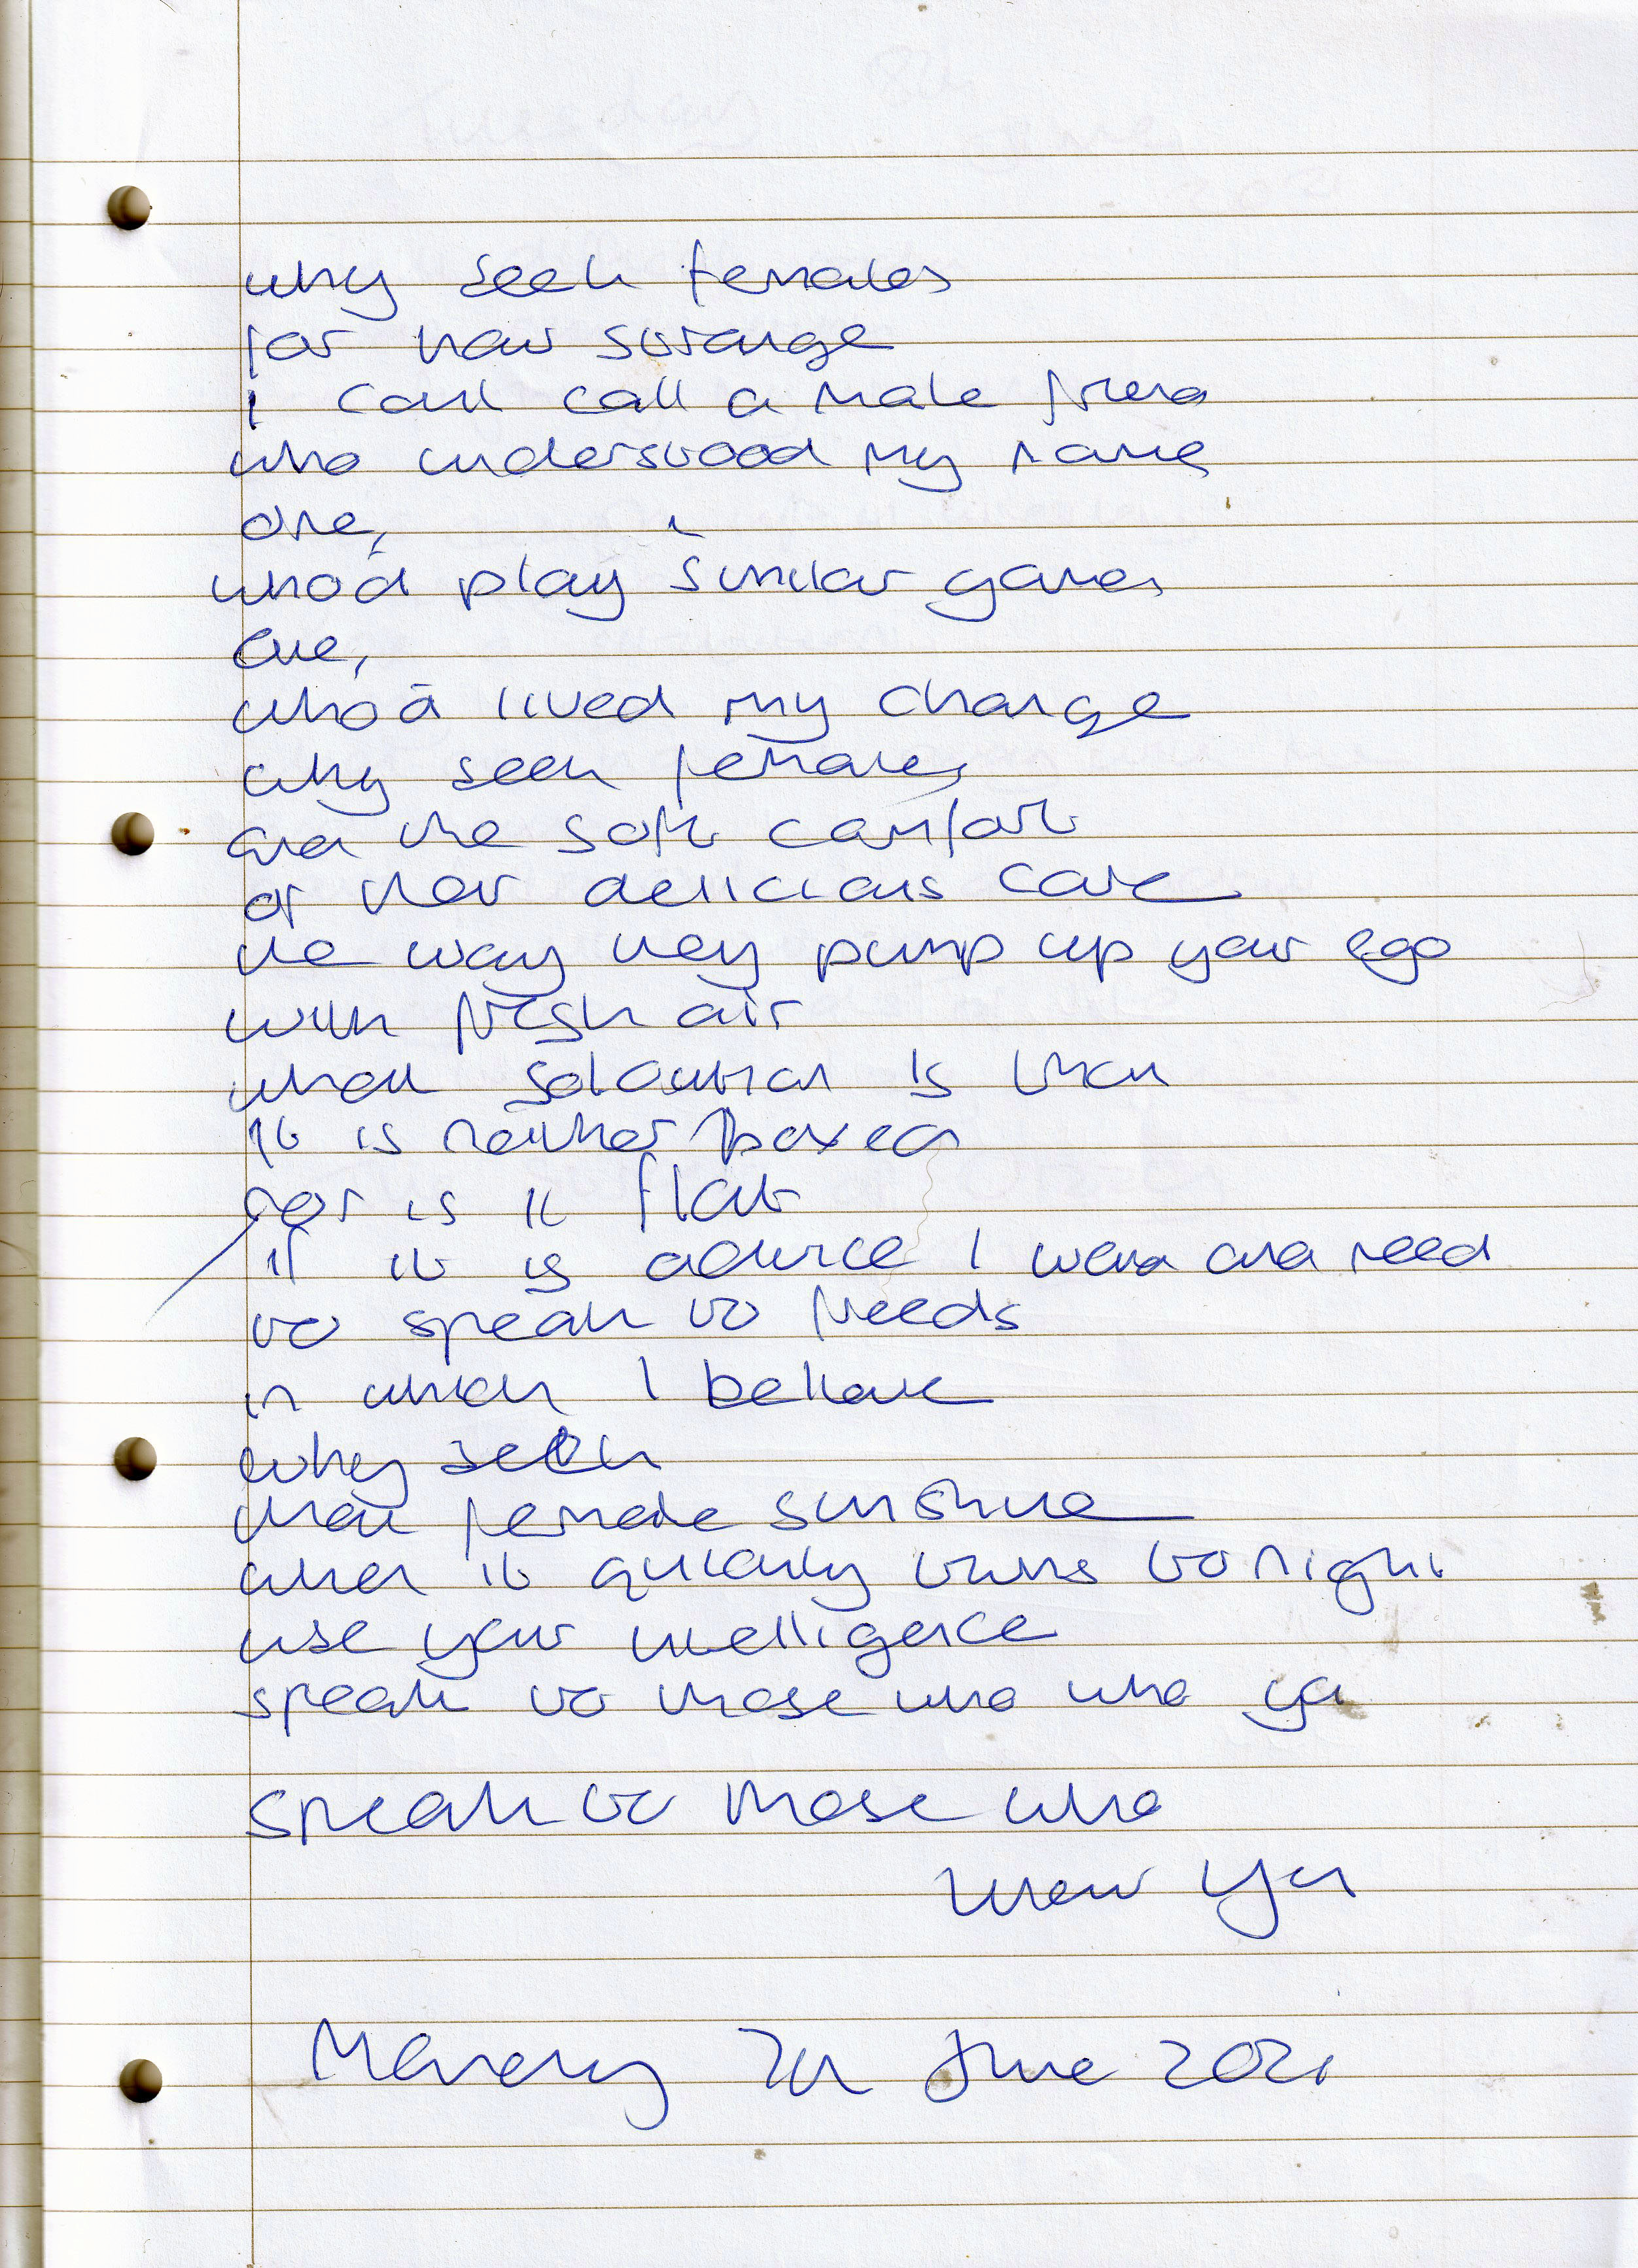 why seek females
for how strange
I can't call a male friend
who understood my name
one,
who'd play similar games
one,
who'd lived my change
why seek females
and the soft comfort
of her delicious care
the way they pump up your ego
with fresh air
what solution is that
it is neither boxed
nor is it flat
if it is advice I want and need
to speak to needs
in which I believe
why seek
that female sunshine
when it quickly turns to night
use your intelligence
speak to those who who ya
speak to those who
knew ya
Monday 7th June 2021